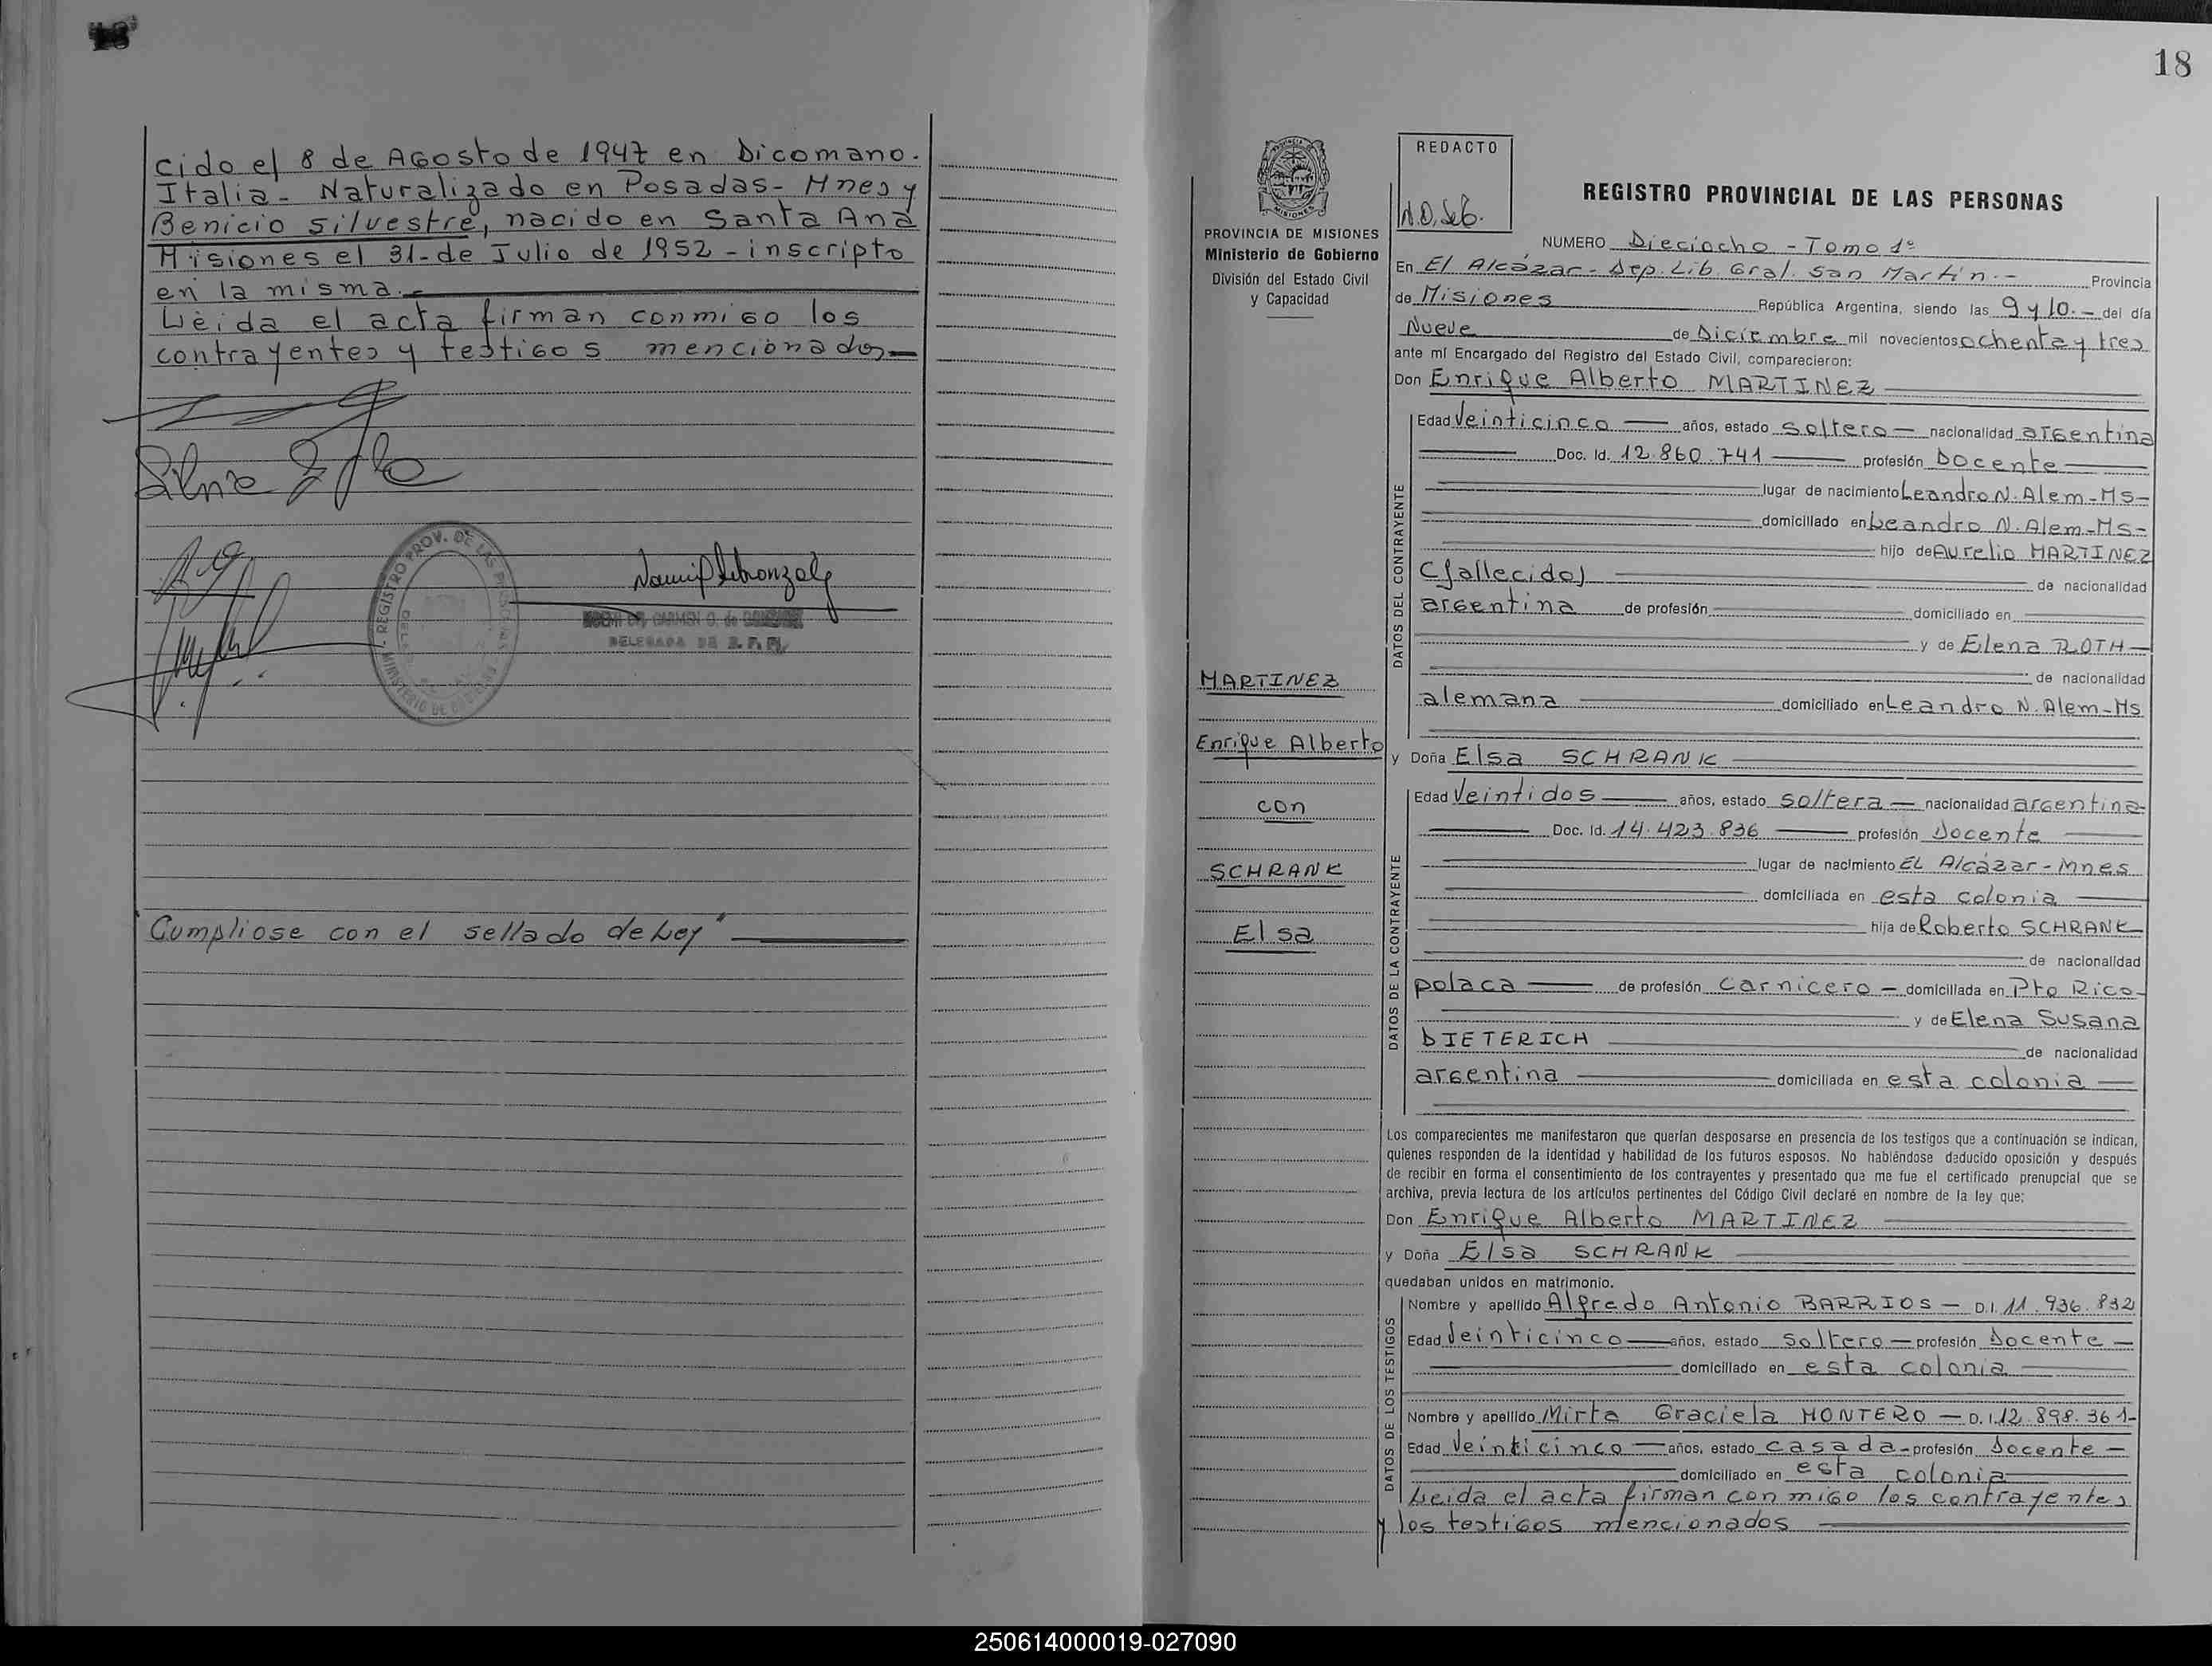 cido el 8 de Agosto de 1947 en Dicomano.
Italia - Naturalizado en Posadas - Mnes y
Benicio Silvestre, nacido en Santa Ana
Misiones el 31 - de Julio de 1952 - inscripto
en la misma. -
Leida el acta firman conmigo los
contrayentes y testigos mencionados
REGISTRO PROV. DE LAS
CARMEN O. de
DELEGADA DE R. P. P.
"Cumpliose con el sellado de Ley"
18
PROVINCIA DE MISIONES
Ministerio de Gobierno
División del Estado Civil
y Capacidad
MARTINEZ
Enrique Alberto
con
SCHRANK
Elsa
REDACTO
REGISTRO PROVINCIAL DE LAS PERSONAS
NUMERO Dieciocho - Tomo 1º
En El Alcázar - Dep. Lib. Gral. San Martín. - Provincia
de Misiones República Argentina, siendo las 9 y 10. - del día
Nueve de Diciembre mil novecientos ochenta y tres
ante mí Encargado del Registro del Estado Civil, comparecieron:
Don Enrique Alberto MARTINEZ
DATOS DEL CONTRAYENTE
Edad Veinticinco años, estado soltero nacionalidad argentina
Doc. Id. 12.860.741 profesión Docente
lugar de nacimiento Leandro N. Alem - Ms -
domiciliado en Leandro N. Alem - Ms -
hijo de Aurelio MARTINEZ
(fallecido) de nacionalidad
argentina de profesión domiciliado en
y de Elena ROTH
de nacionalidad
alemana domiciliado en Leandro N. Alem - Ms
y Doña Elsa SCHRANK
DATOS DE LA CONTRAYENTE
Edad Veintidos años, estado soltera nacionalidad argentina
Doc. Id. 14.423.836 profesión Docente
lugar de nacimiento El Alcázar - Mnes
domiciliada en esta colonia
hija de Roberto SCHRANK
de nacionalidad
polaca de profesión carnicero - domiciliada en Pto Rico
y de Elena Susana
DIETERICH de nacionalidad
argentina domiciliada en esta colonia
Los comparecientes me manifestaron que querían desposarse en presencia de los testigos que a continuación se indican,
quienes responden de la identidad y habilidad de los futuros esposos. No habiéndose deducido oposición y después
de recibir en forma el consentimiento de los contrayentes y presentado que me fue el certificado prenupcial que se
archiva, previa lectura de los artículos pertinentes del Código Civil declaré en nombre de la ley que:
Don Enrique Alberto MARTINEZ
y Doña Elsa SCHRANK
quedaban unidos en matrimonio.
DATOS DE LOS TESTIGOS
Nombre y apellido Alfredo Antonio BARRIOS - D.I. 11.936.832
Edad Veinticinco años, estado soltero profesión Docente
domiciliado en esta colonia
Nombre y apellido Mirta Graciela MONTERO - D.I. 12.898.361-
Edad Veinticinco años, estado casada - profesión Docente -
domiciliado en esta colonia
Leida el acta firman conmigo los contrayentes
y los testigos mencionados
250614000019-027090